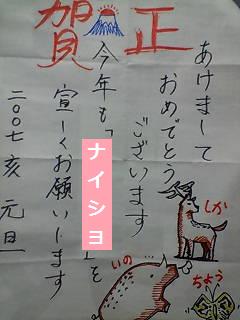 賀正
あけまして
おめでとう
ございます
今年も「ナイショ」を
宜しくお願いします
二〇〇七 亥 元旦
しか
いの
ちょう